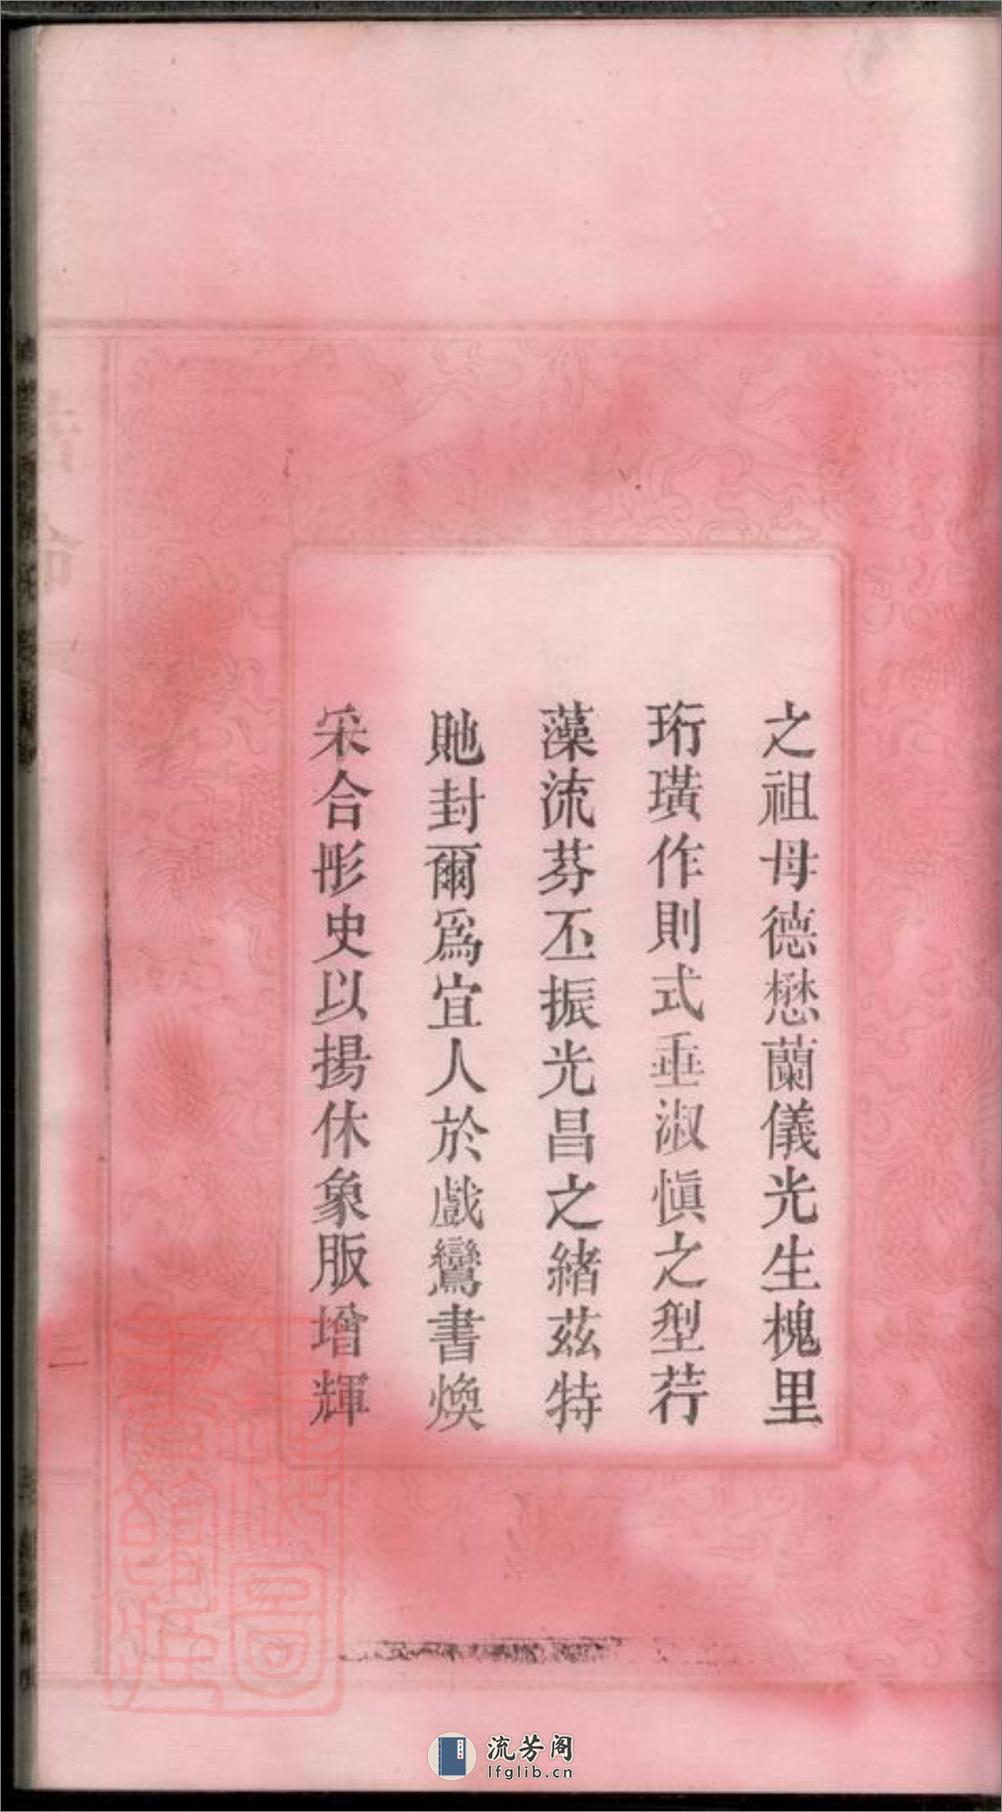 之祖母德懋蘭儀光生槐里
珩璜作則式垂淑慎之型荇
藻流芬丕振光昌之緒茲特
貤封爾爲宜人於戲鸞書煥
采合彤史以揚休象服增輝
誥命
二
流芳阁
lfglib.cn